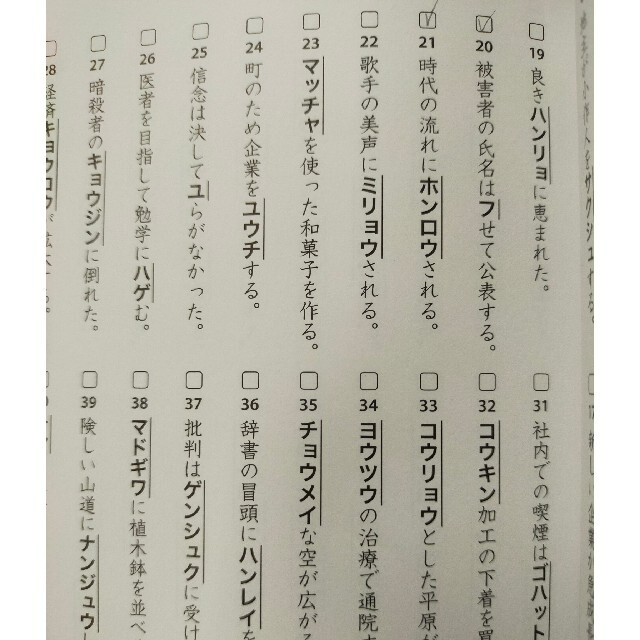 19 良きハンリョに恵まれた。
20 被害者の氏名はフせて公表する。
21 時代の流れにホンロウされる。
22 歌手の美声にミリョウされる。
23 マッチャを使った和菓子を作る。
24 町のため企業をユウチする。
25 信念は決してユらがなかった。
26 医者を目指して勉学にハゲむ。
27 暗殺者のキョウジンに倒れた。
28 経済キョウコウが拡大
31 社内での喫煙はゴハット
32 コウキン加工の下着を買
33 コウリョウとした平原が
34 ヨウツウの治療で通院す
35 チョウメイな空が広がる
36 辞書の冒頭にハンレイを
37 批判はゲンシュクに受け
38 マドギワに植木鉢を並べ
39 険しい山道にナンジュウし